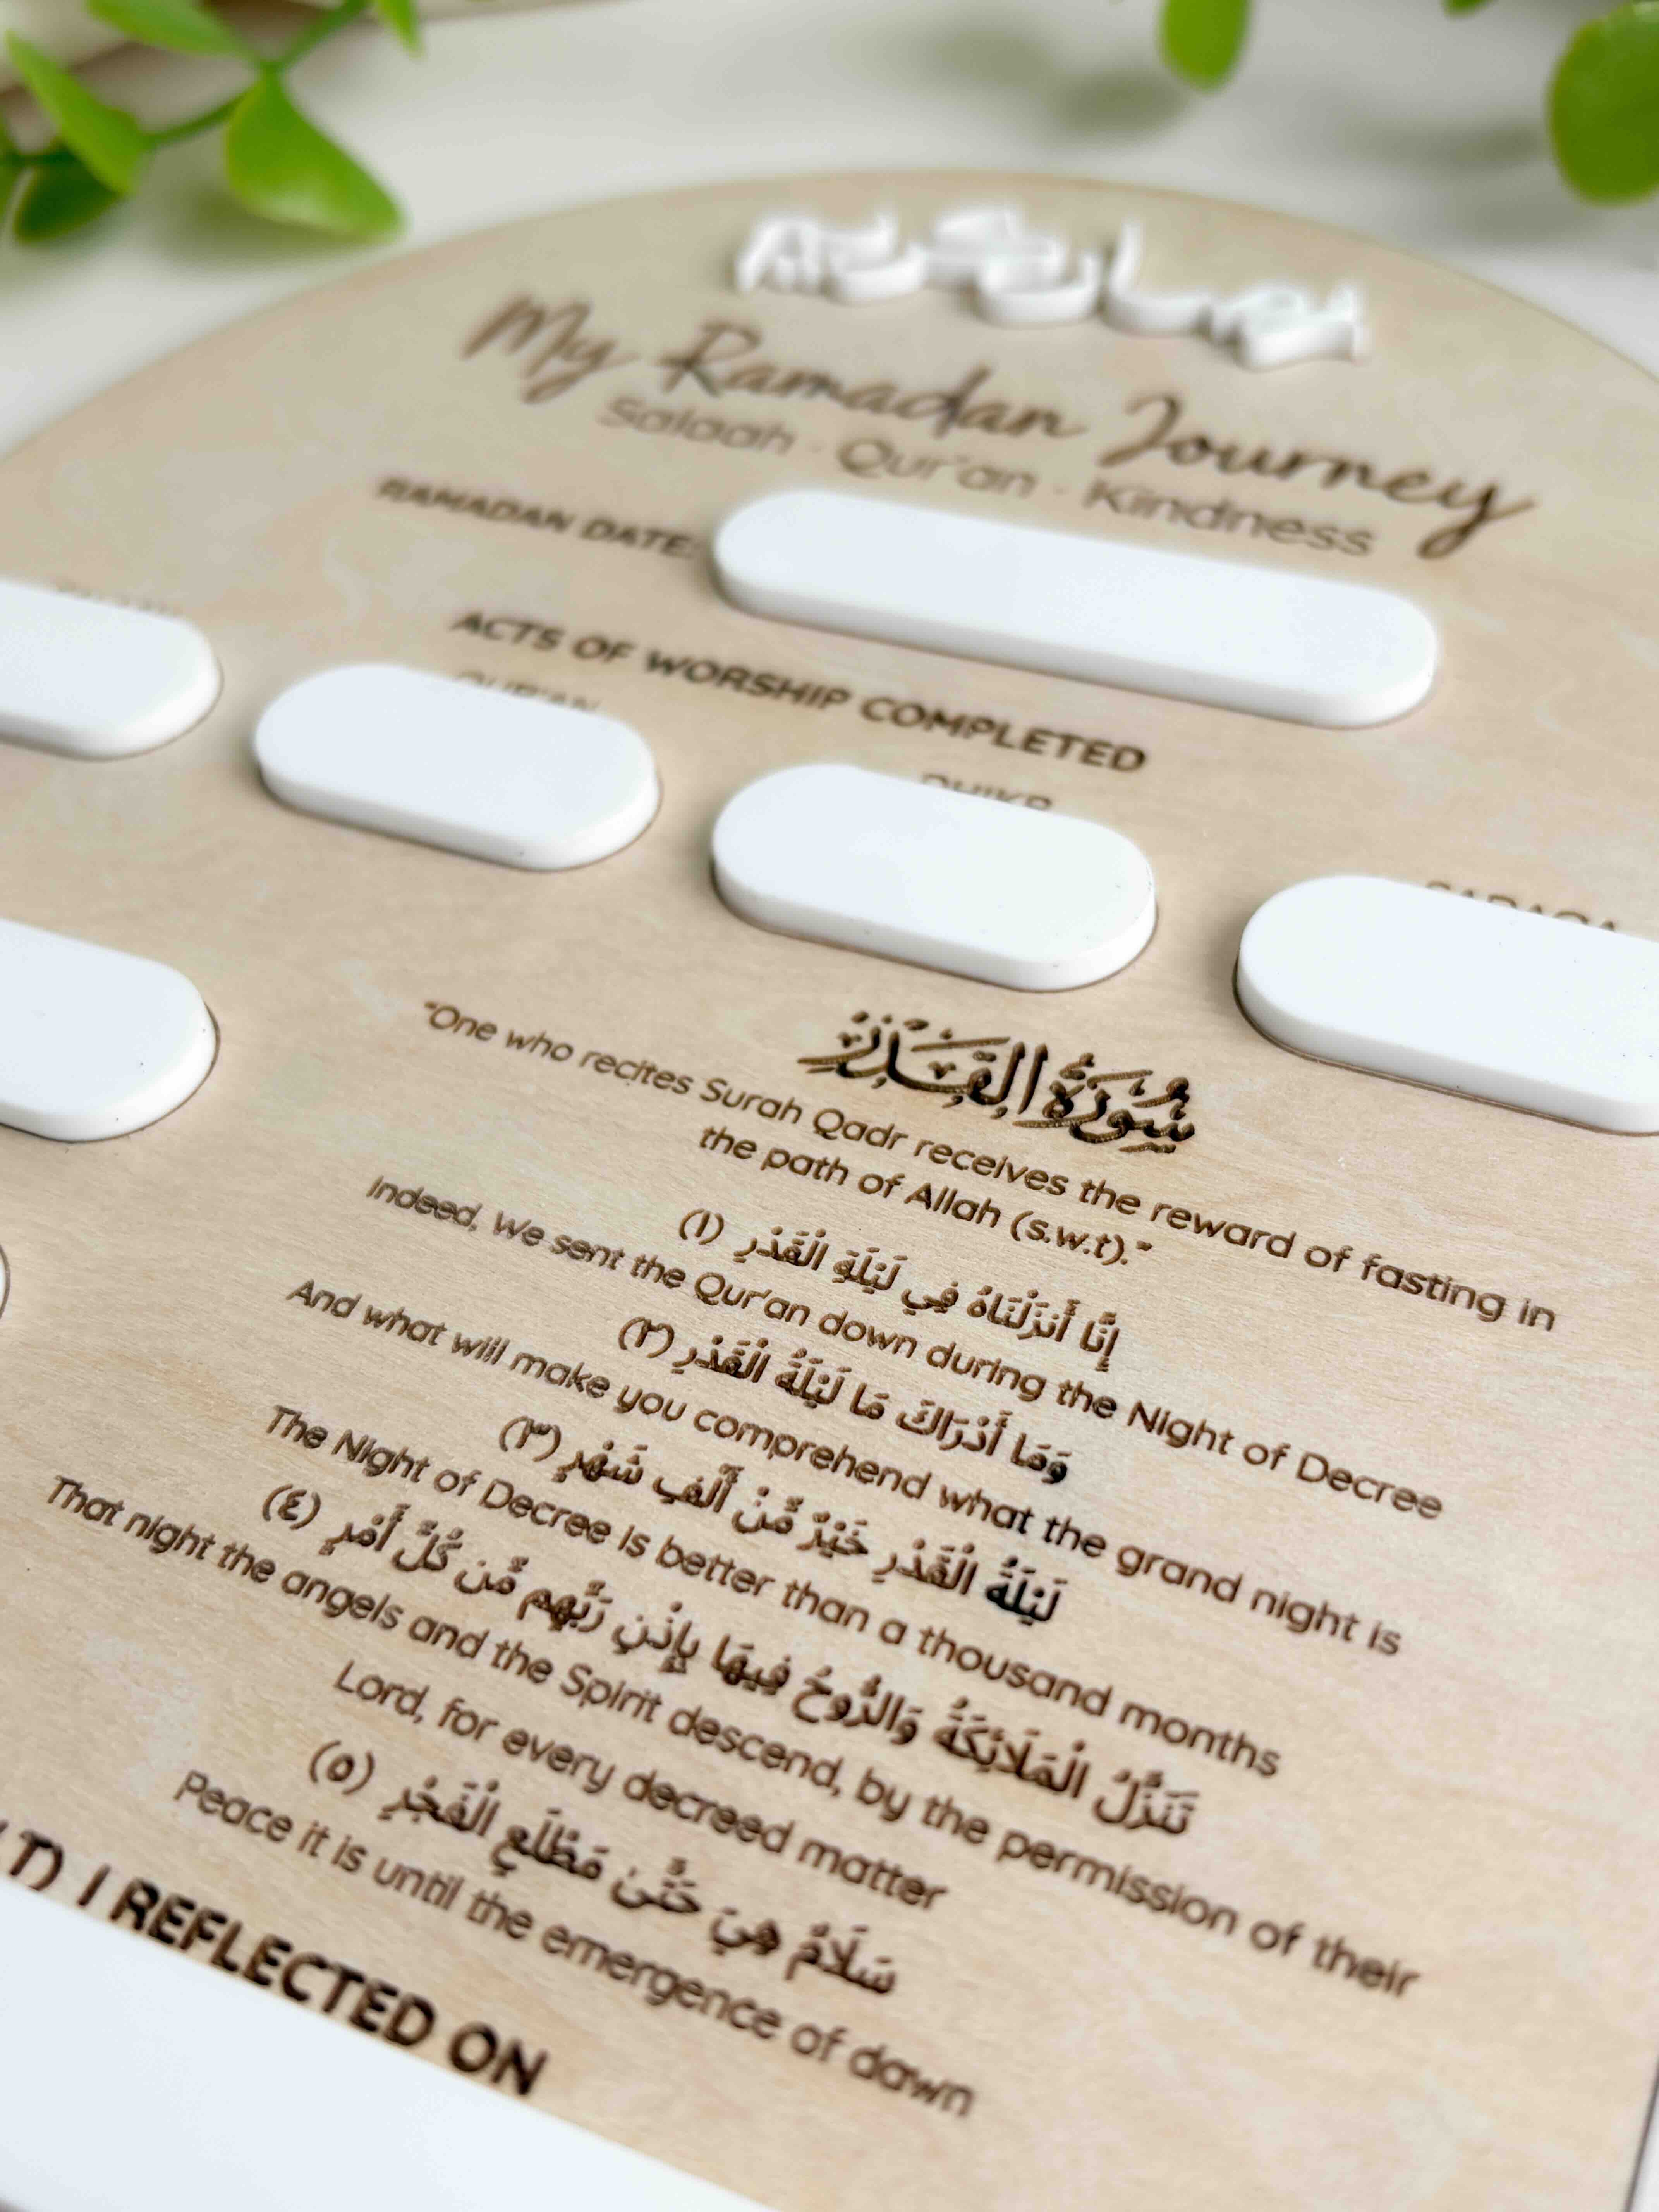 رمضان كريم
My Ramadan Journey
Salaah · Qur'an · Kindness
RAMADAN DATE:
ACTS OF WORSHIP COMPLETED
QUR'AN
DHIKR
SADAQA
سُورَةُ القَدْرِ
"One who recites Surah Qadr receives the reward of fasting in
the path of Allah (s.w.t)."
إِنَّا أَنزَلْنَاهُ فِي لَيْلَةِ الْقَدْرِ (١)
Indeed, We sent the Qur'an down during the Night of Decree
وَمَا أَدْرَاكَ مَا لَيْلَةُ الْقَدْرِ (٢)
And what will make you comprehend what the grand night is
لَيْلَةُ الْقَدْرِ خَيْرٌ مِّنْ أَلْفِ شَهْرٍ (٣)
The Night of Decree is better than a thousand months
تَنَزَّلُ الْمَلَائِكَةُ وَالرُّوحُ فِيهَا بِإِذْنِ رَبِّهِم مِّن كُلِّ أَمْرٍ (٤)
That night the angels and the Spirit descend, by the permission of their
Lord, for every decreed matter
سَلَامٌ هِيَ حَتَّىٰ مَطْلَعِ الْفَجْرِ (٥)
Peace it is until the emergence of dawn
T) I REFLECTED ON